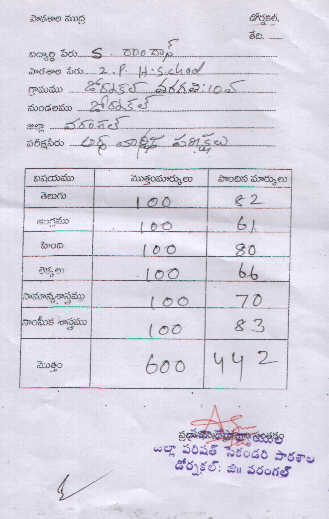 పాఠశాల ముద్ర డోర్నకల్,
తేది.
విద్యార్థి పేరు S రాందాస్
పాఠశాల పేరు Z.P. H.School
గ్రామము డోర్నకల్ తరగతి:10వ
మండలము డోర్నకల్
జిల్లా వరంగల్
పరీక్షపేరు అర్ధ వార్షిక పరీక్షలు
విషయము మొత్తంమార్కులు పొందిన మార్కులు
తెలుగు 100 82
ఆంగ్లము 100 61
హింది 100 80
లెక్కలు 100 66
సామాన్యశాస్త్రము 100 70
సాంఘీక శాస్త్రము 100 83
మొత్తం 600 442
జిల్లా పరిషత్ సెకండరి పాఠశాల
డోర్నకల్: జిll వరంగల్